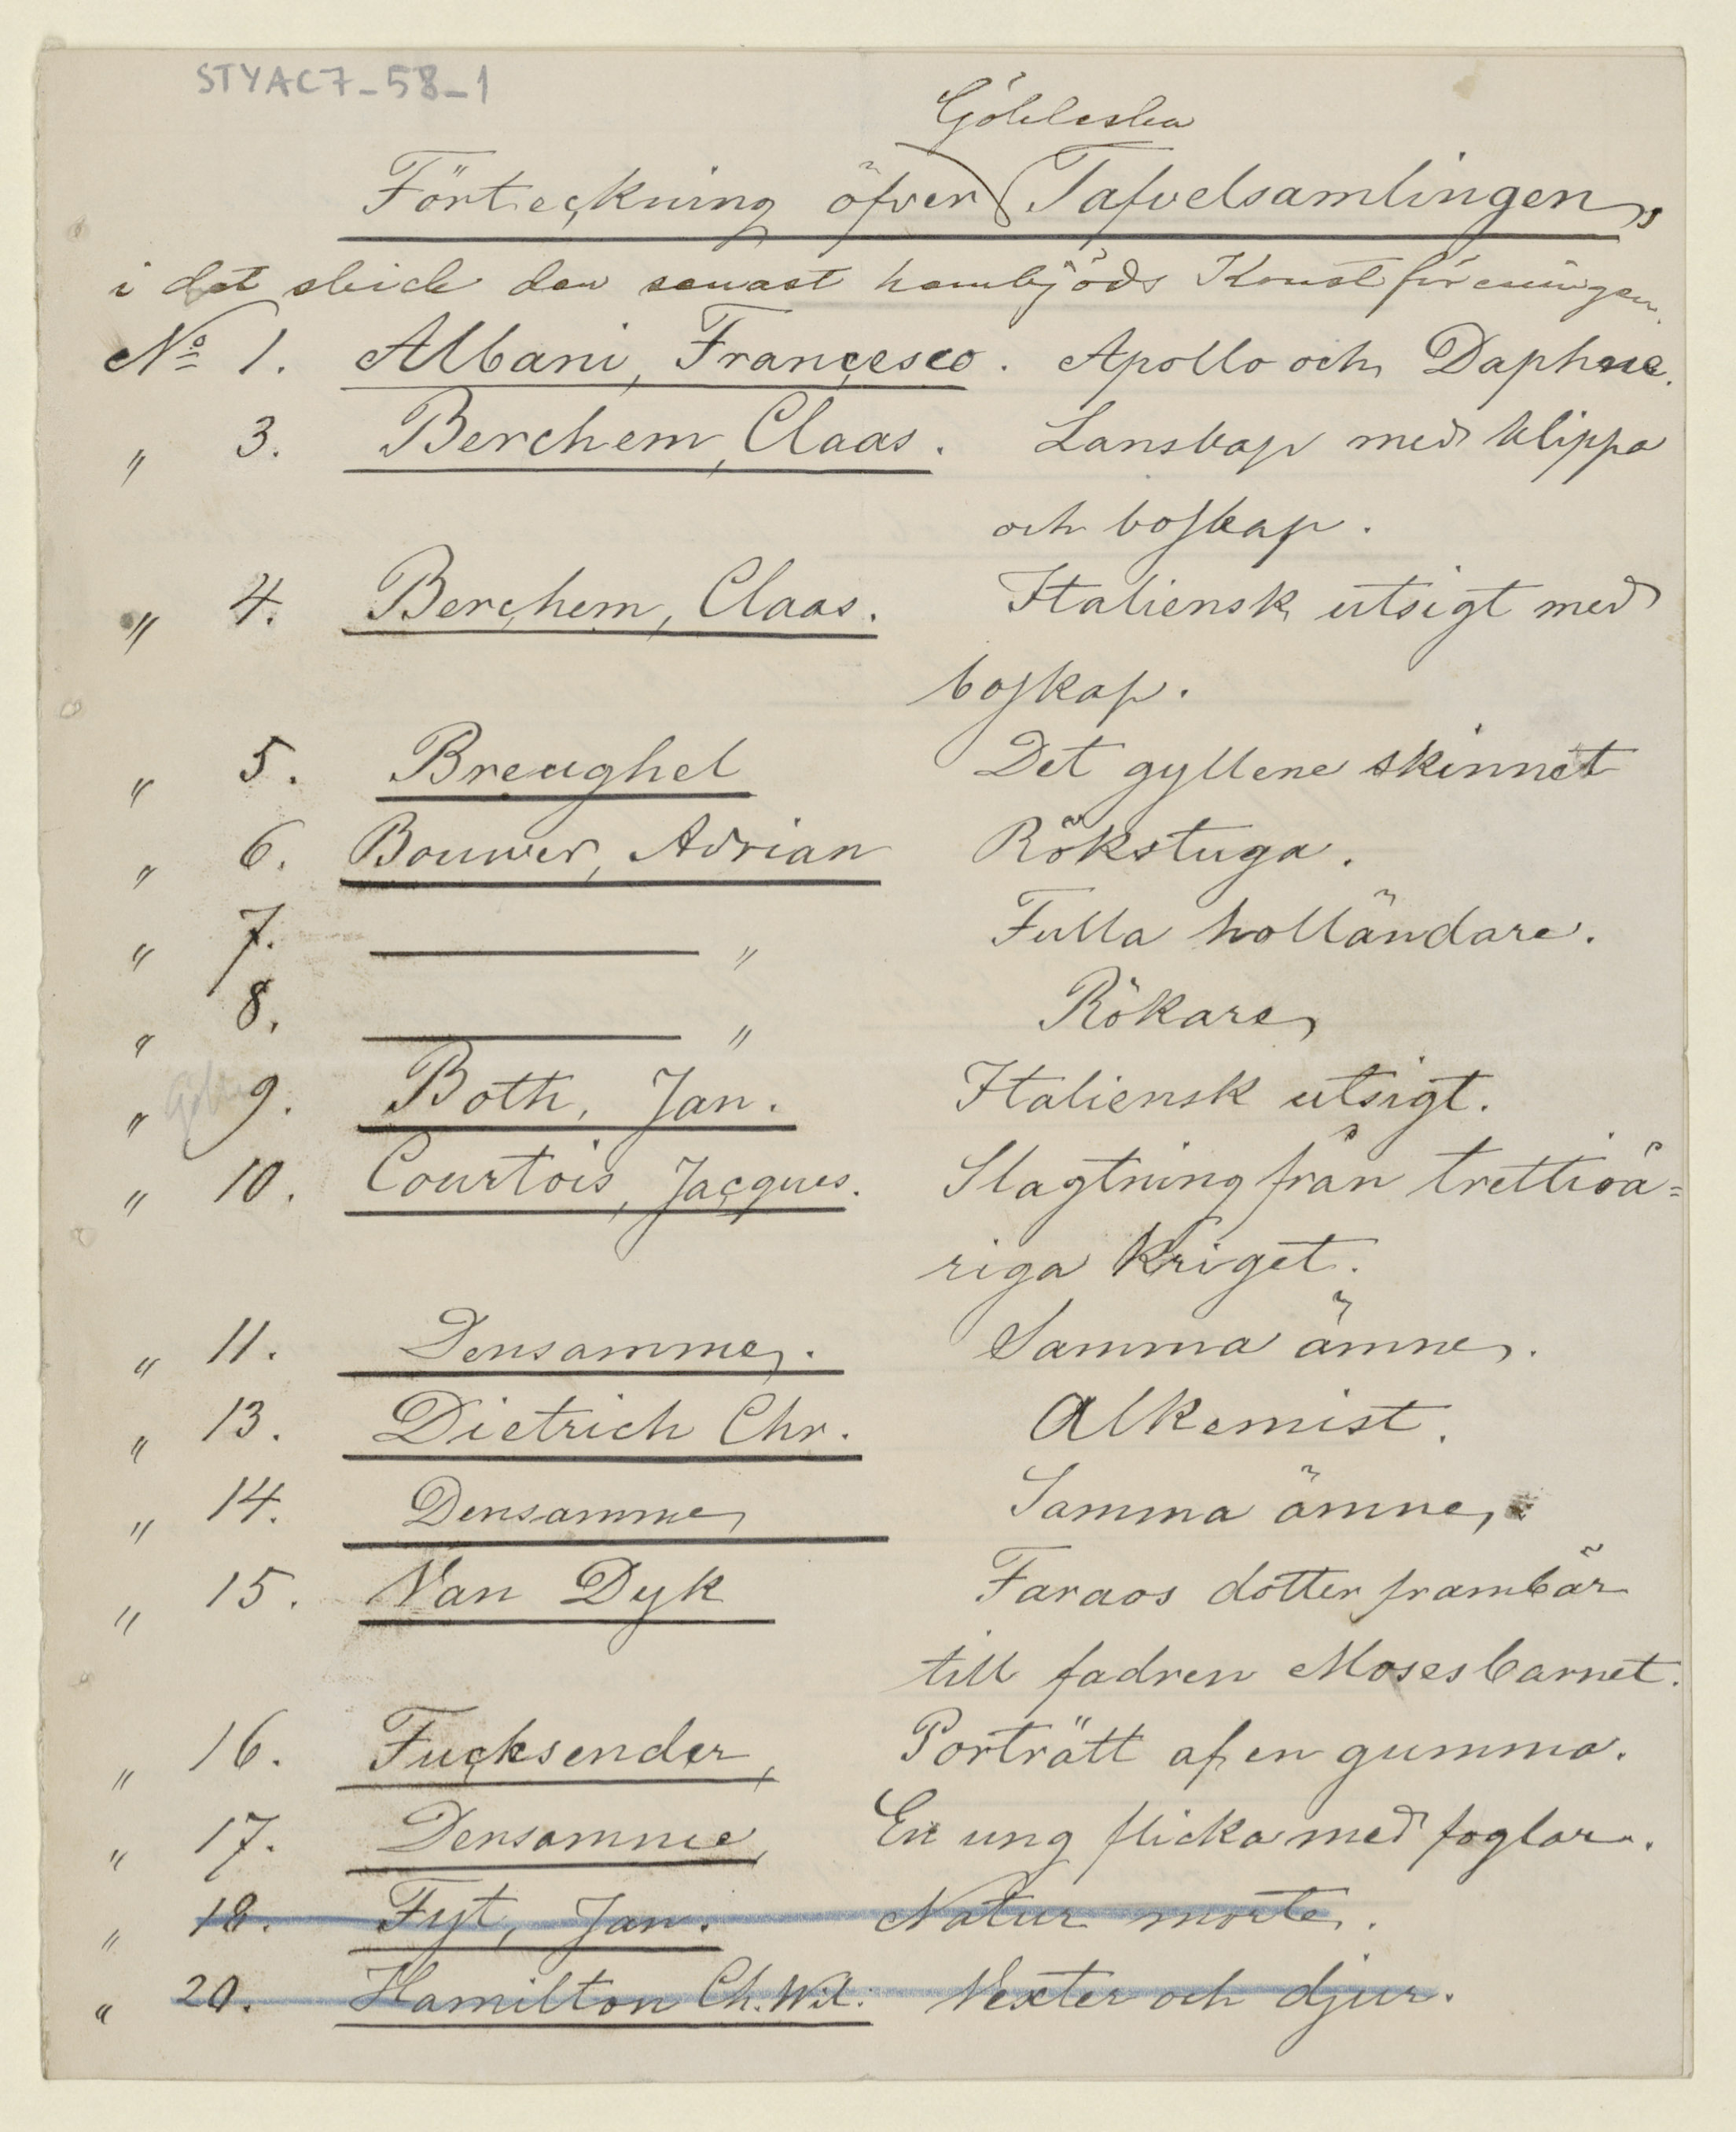 STYAC7-58-1
Göhleska
Förteckning öfver Tafvelsamlingen,
i det skick den senast hembjöds Konstföreningen.
No 1. Albani, Francesco. Apollo och Daphne.
„ 3. Berchem, Claas. Lanskap med klippa
och boskap.
„ 4. Berchem, Claas. Italiensk utsigt med
boskap.
„ 5. Breughel Det gyllene skinnet
„ 6. Bouwer, Adrian Rökstuga.
„ 7. — „ Fulla holländare.
„ 8. — „ Rökare
„ 9. Both, Jan. Italiensk utsigt.
„ 10. Courtois, Jacques. Slagtning från trettioå=
riga kriget.
„ 11. Densamme. Samma ämne.
„ 13. Dietrich Chr. Alkemist.
„ 14. Densamme Samma ämne,
„ 15. Van Dyk Faraos dotter frambär
till fadren Mosesbarnet.
„ 16. Fucksender, Porträtt af en gumma.
„ 17. Densamme, En ung flicka med foglar.
„ 18. Fyt, Jan. Natur morte.
„ 20. Hamilton Ch. Wil. Vexter och djur.